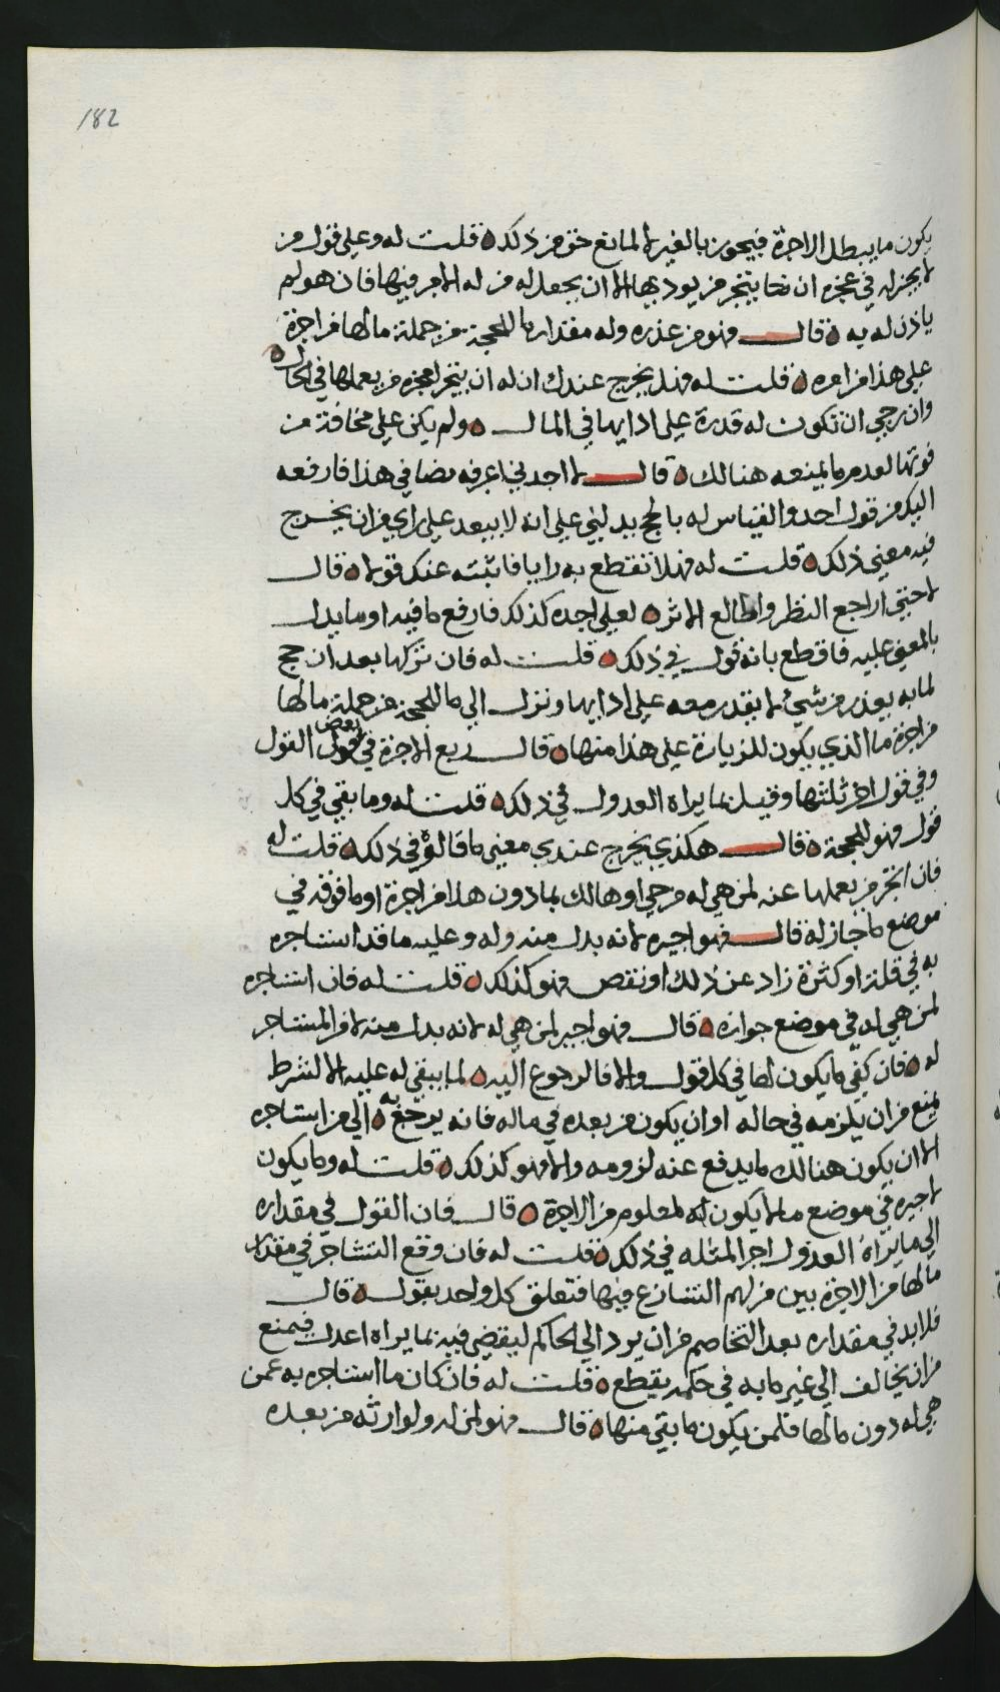 182
يكون ما يبطل الاجرة فيجوز بالغير لا لمانع حق من ذلك قلت له وعلى قول من
لا يجيز له في عجزه ان يتجر من يود بها الا ان يجعل له من له الامر فيها فان هو لم
ياذن له به قال فهو من عذره وله مقدار ما للحجة من جملة ما لها من اجرة
على هذا من امره قلت له فهل يخرج عندك ان له ان يتجر لعجزه من يعملها في الحال
وان رجي ان تكون له قدرة على ادايها في المال ولم يكن على مخافة من
فوتها لعدم ما يمنعه هنالك قال لا اجدني اعرفه نصا في هذا فارفعه
اليك من قول احد والقياس له بالحج يدلني على انه لا يبعد على راي من ان يخرج
فيه معنى ذلك قلت له فهلا تقطع به رايا فاثبته عنك قولا قال
لا حتى اراجع النظر واطالع الاثر لعلي اجده كذلك فارفع ما فيه او ما يدل
بالمعنى عليه فاقطع بانه قول في ذلك قلت له فان تركها بعد ان حج
لما به يعذر من شيء لا يقدر معه على ادايها ونزل الى ما للحجة من جملة ما لها
من اجرة ما الذي يكون للزيارة على هذا منها قال ربع الاجرة في بعض القول
وفي قول اخر ثلثها وقيل بما يراه العدول في ذلك قلت له وما بقي في كل
قول فهو للحجة قال هكذي يخرج عندي معنى ما قالوه في ذلك قلت له
فان اتجر من يعملها عنه لمن هي له من حي او هالك بما دون هذا من اجرة او ما فوقه في
موضع ما جاز له قال فهو اجيره لانه بدل منه وله وعليه ما قد استاجره
به في قلة او كثرة زاد عن ذلك او نقص فهو كذلك قلت له فان استاجره
لمن هي له في موضع جوازه قال فهو اجير لمن هي له لانه بدل منه لا من المستاجر
له فان كفى ما يكون لها في كل قول والا فالرجوع اليه لما يبقى له عليه الا لشرط
يمنع من ان يلزمه في حاله او ان يكون من بعده في ماله فانه يرجع به الى من استاجره
الا ان يكون هنالك ما يدفع عنه لزومه والا فهو كذلك قلت له وما يكون
لاجيره في موضع ما لا يكون له لمعلوم من الاجرة قال فان القول في مقداره
الى ما يراه العدول اجر المثله في ذلك قلت له فان وقع التشاجر في مقدار
ما لها من الاجرة بين من لهم التنازع فيها فتعلق كل واحد بقول قال
فلا بد في مقداره بعد التخاصم من ان يرد الى الحاكم ليقضي فيه بما يراه اعدل فيمنع
من ان يخالف الى غير ما به في حكمه يقطع قلت له فان كان ما استاجره به عمن
هي له دون ما لها فلمن يكون ما بقي منها قال فهو لمن له ولوارثه من بعده